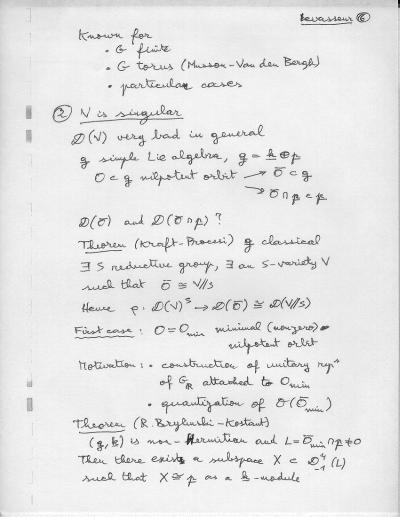 Levasseur ⑥
Known for
• G finite
• G torus (Musson-Van den Bergh)
• particular cases
② V is singular
D(V) very bad in general
g simple Lie algebra, g = k ⊕ p
O ⊂ g nilpotent orbit → Ō ⊂ g
→ Ō ∩ p ⊂ p
D(Ō) and D(Ō ∩ p) ?
Theorem (Kraft-Procesi) g classical
∃ S reductive group, ∃ an S-variety V
such that Ō ≅ V//S
Hence ρ: D(V)^S → D(Ō) ≅ D(V//S)
First case: O = O_min minimal (nonzero)
nilpotent orbit
Motivation: • construction of unitary rep^n
of G_R attached to O_min
• quantization of O(Ō_min)
Theorem (R. Brylinski-Kostant)
(g, k) is non-Hermitian and L = Ō_min ∩ p ≠ 0
Then there exists a subspace X ⊂ D^4_-1 (L)
such that X ≅ p as a k-module